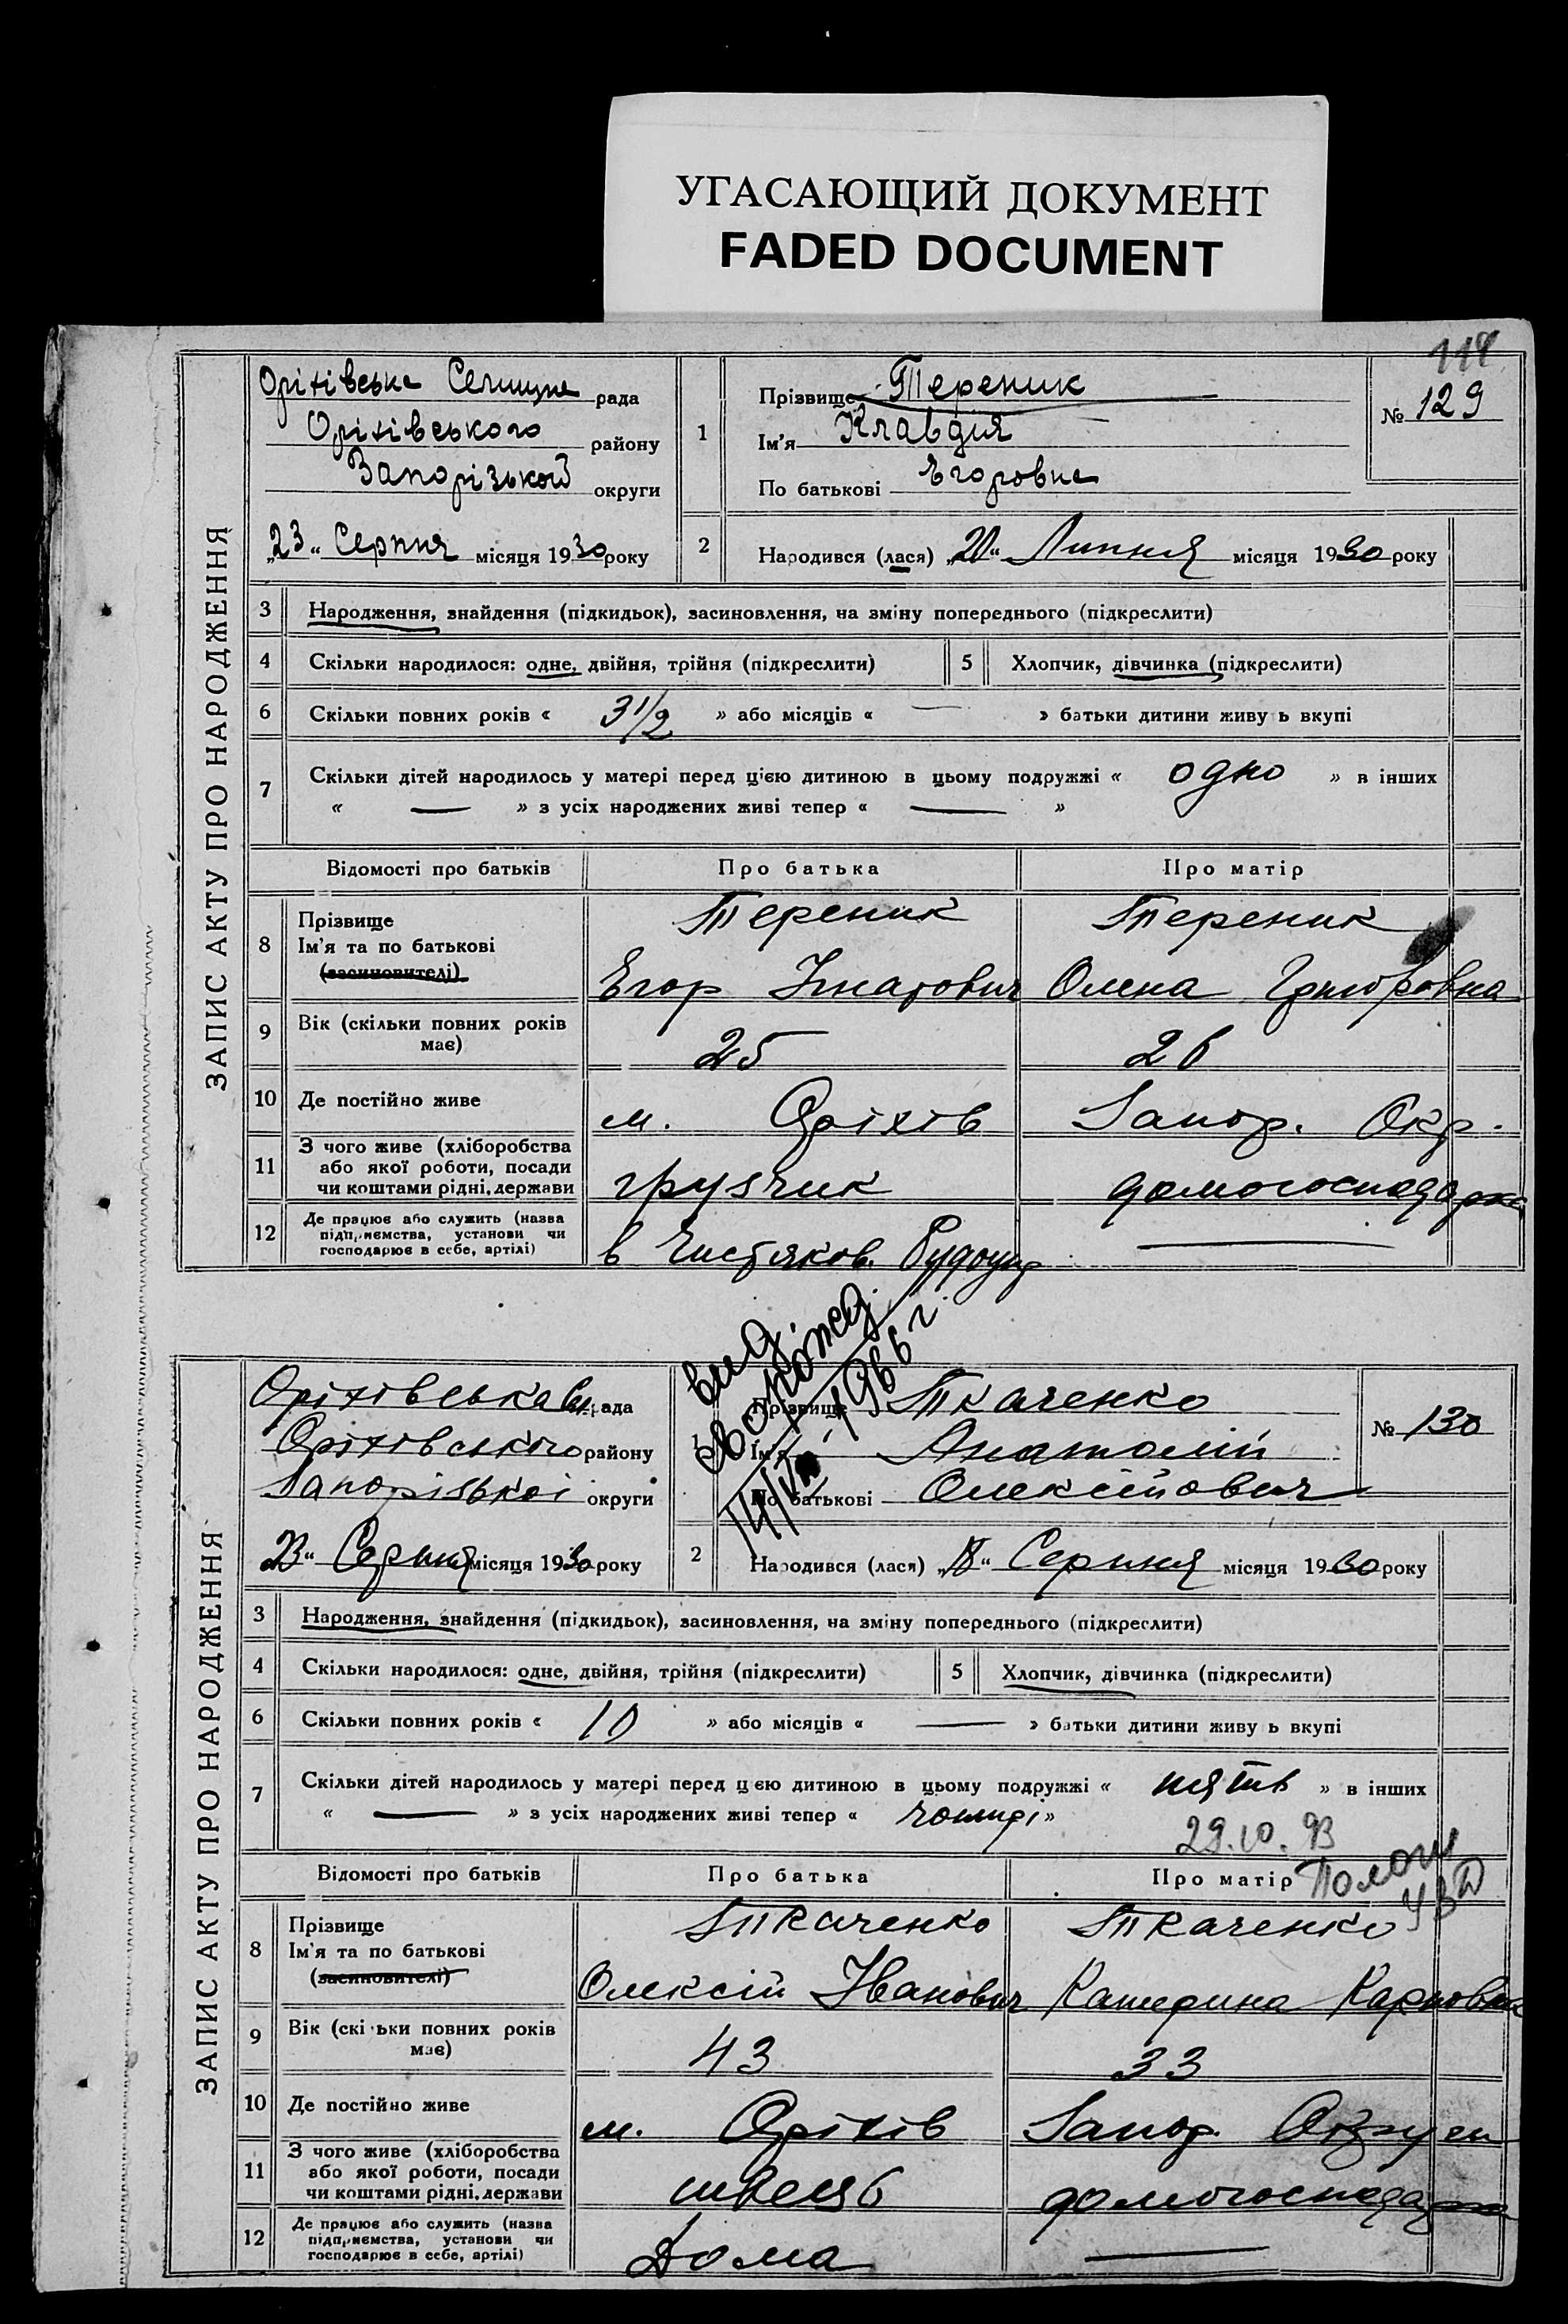 УГАСАЮЩИЙ ДОКУМЕНТ
FADED DOCUMENT
ЗАПИС АКТУ ПРО НАРОДЖЕННЯ
Оріхівська Селищна рада
Оріхівського району
Запорізької округи
„23“ Серпня місяця 1930 року
1
Прізвище Тереник
Ім'я Клавдия
По батькові Єгоровна
№ 129
2
Народився (лася) Липня місяця 1930 року
3 Народження, знайдення (підкидьок), засиновлення, на зміну попереднього (підкреслити)
4 Скільки народилося: одне, двійня, трійня (підкреслити) 5 Хлопчик, дівчинка (підкреслити)
6 Скільки повних років « 3 1/2 » або місяців « — » батьки дитини живу ь вкупі
7 Скільки дітей народилось у матері перед цією дитиною в цьому подружжі « одно » в інших
« — » з усіх народжених живі тепер « — »
Відомості про батьків Про батька Про матір
8 Прізвище Тереник Тереник
Ім'я та по батькові
(засиновителі) Єгор Олена Григоровна
9 Вік (скільки повних років має) 25 26
10 Де постійно живе м. Оріхів Запор. Окр.
11 З чого живе (хліборобства або якої роботи, посади чи коштами рідні, держави грузчик домогосподарка
12 Де працює або служить (назва підприємства, установи чи господарює в себе, артілі) в Чистяков. —
вид.
свокожд.
1966 г.
ЗАПИС АКТУ ПРО НАРОДЖЕННЯ
Оріхівська рада
Оріхівського району
Запорізької округи
„23“ Серпня місяця 1930 року
Прізвище Ткаченко
Ім'я Анатолій
По батькові Олексійович
№ 130
2
Народився (лася) Серпня місяця 1930 року
3 Народження, знайдення (підкидьок), засиновлення, на зміну попереднього (підкреслити)
4 Скільки народилося: одне, двійня, трійня (підкреслити) 5 Хлопчик, дівчинка (підкреслити)
6 Скільки повних років « 10 » або місяців « — » батьки дитини живу ь вкупі
7 Скільки дітей народилось у матері перед цією дитиною в цьому подружжі « пять » в інших
« — » з усіх народжених живі тепер « чотирі »
29.10.93
Відомості про батьків Про батька Про матір
8 Прізвище Ткаченко Ткаченко
Ім'я та по батькові
(засиновителі) Олексій Іванович Катерина Карповна
9 Вік (скільки повних років має) 43 33
10 Де постійно живе м. Оріхів Запор. Округи
11 З чого живе (хліборобства або якої роботи, посади чи коштами рідні, держави швець домогосподарка
12 Де працює або служить (назва підприємства, установи чи господарює в себе, артілі) Дома —